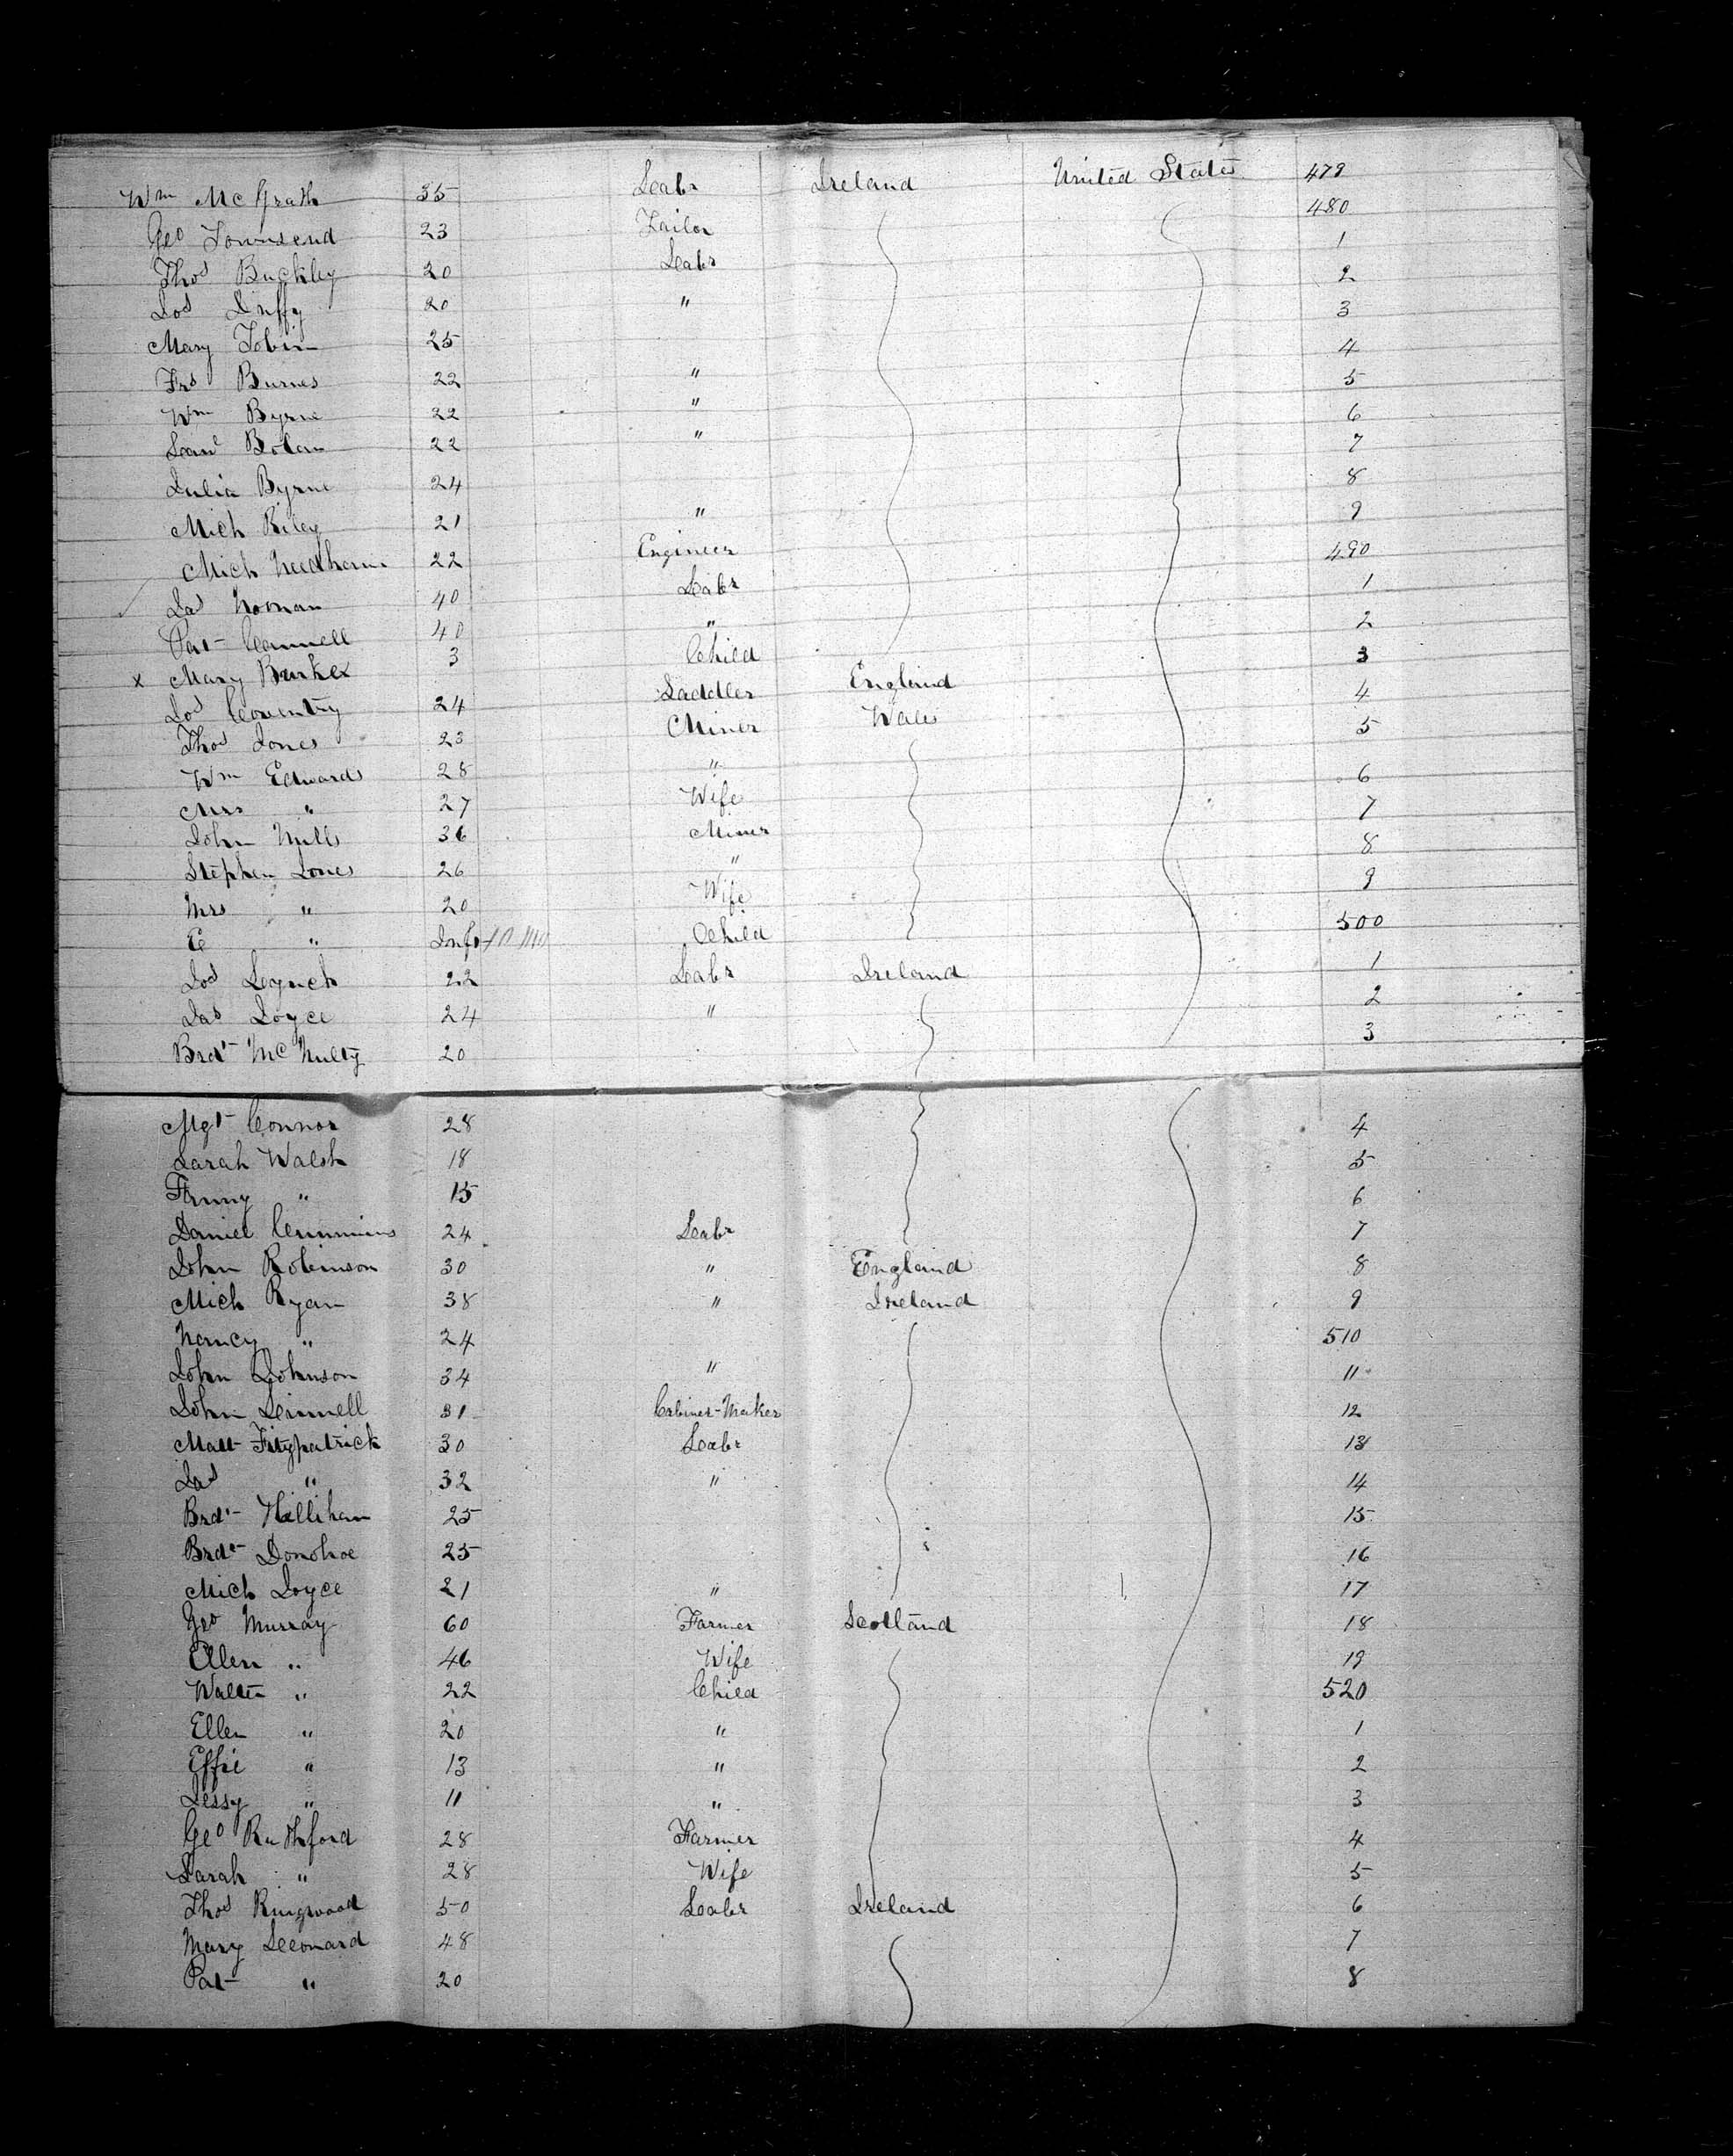 Wm McGrath 35 Labr Ireland United States 479
Geo Townsend 23 Tailor 480
Thos Buckley 20 Labr 1
Jos Duffy 20 " 2
Mary Tobin 25 3
Frs Burnes 22 " 4
Wm Byrne 22 " 5
Law Bolan 22 " 6
Julia Byrne 24 7
Mich Riley 21 " 8
Mich Needham 22 Engineer 9
Jas Noonan 40 Labr 490
Pat Connell 40 " 1
x Mary Burke 3 Child 2
Jos Coventry 24 Saddler England 3
Thos Jones 23 Miner Wales 4
Wm Edwards 28 " 5
Mrs " 27 Wife 6
John Mills 36 Miner 7
Stephen Jones 26 " 8
Mrs " 20 Wife 9
E " Inft Child 500
Jos Lynch 22 Labr Ireland 1
Jas Joyce 24 " 2
Brdt McNulty 20 3
Mgt Connor 28 4
Sarah Walsh 18 5
Fanny " 15 6
Daniel Cummins 24 Labr 7
John Robinson 30 " England 8
Mich Ryan 38 " Ireland 9
Nancy " 24 510
John Johnson 34 " 11
John 31 Cabinet-Maker 12
Matt Fitzpatrick 30 Labr 13
Jas " 32 " 14
Brdt Hillihan 25 15
Brdt Donohoe 25 16
Mich Joyce 21 " 17
Geo Murray 60 Farmer Scotland 18
Ellen " 46 Wife 19
Walter " 22 Child 520
Ellen " 20 " 1
Effie " 13 " 2
Jessy " 11 " 3
Geo Ruthford 28 Farmer 4
Sarah " 28 Wife 5
Thos Ringwood 50 Labr Ireland 6
Mary Leonard 48 7
Pat " 20 8